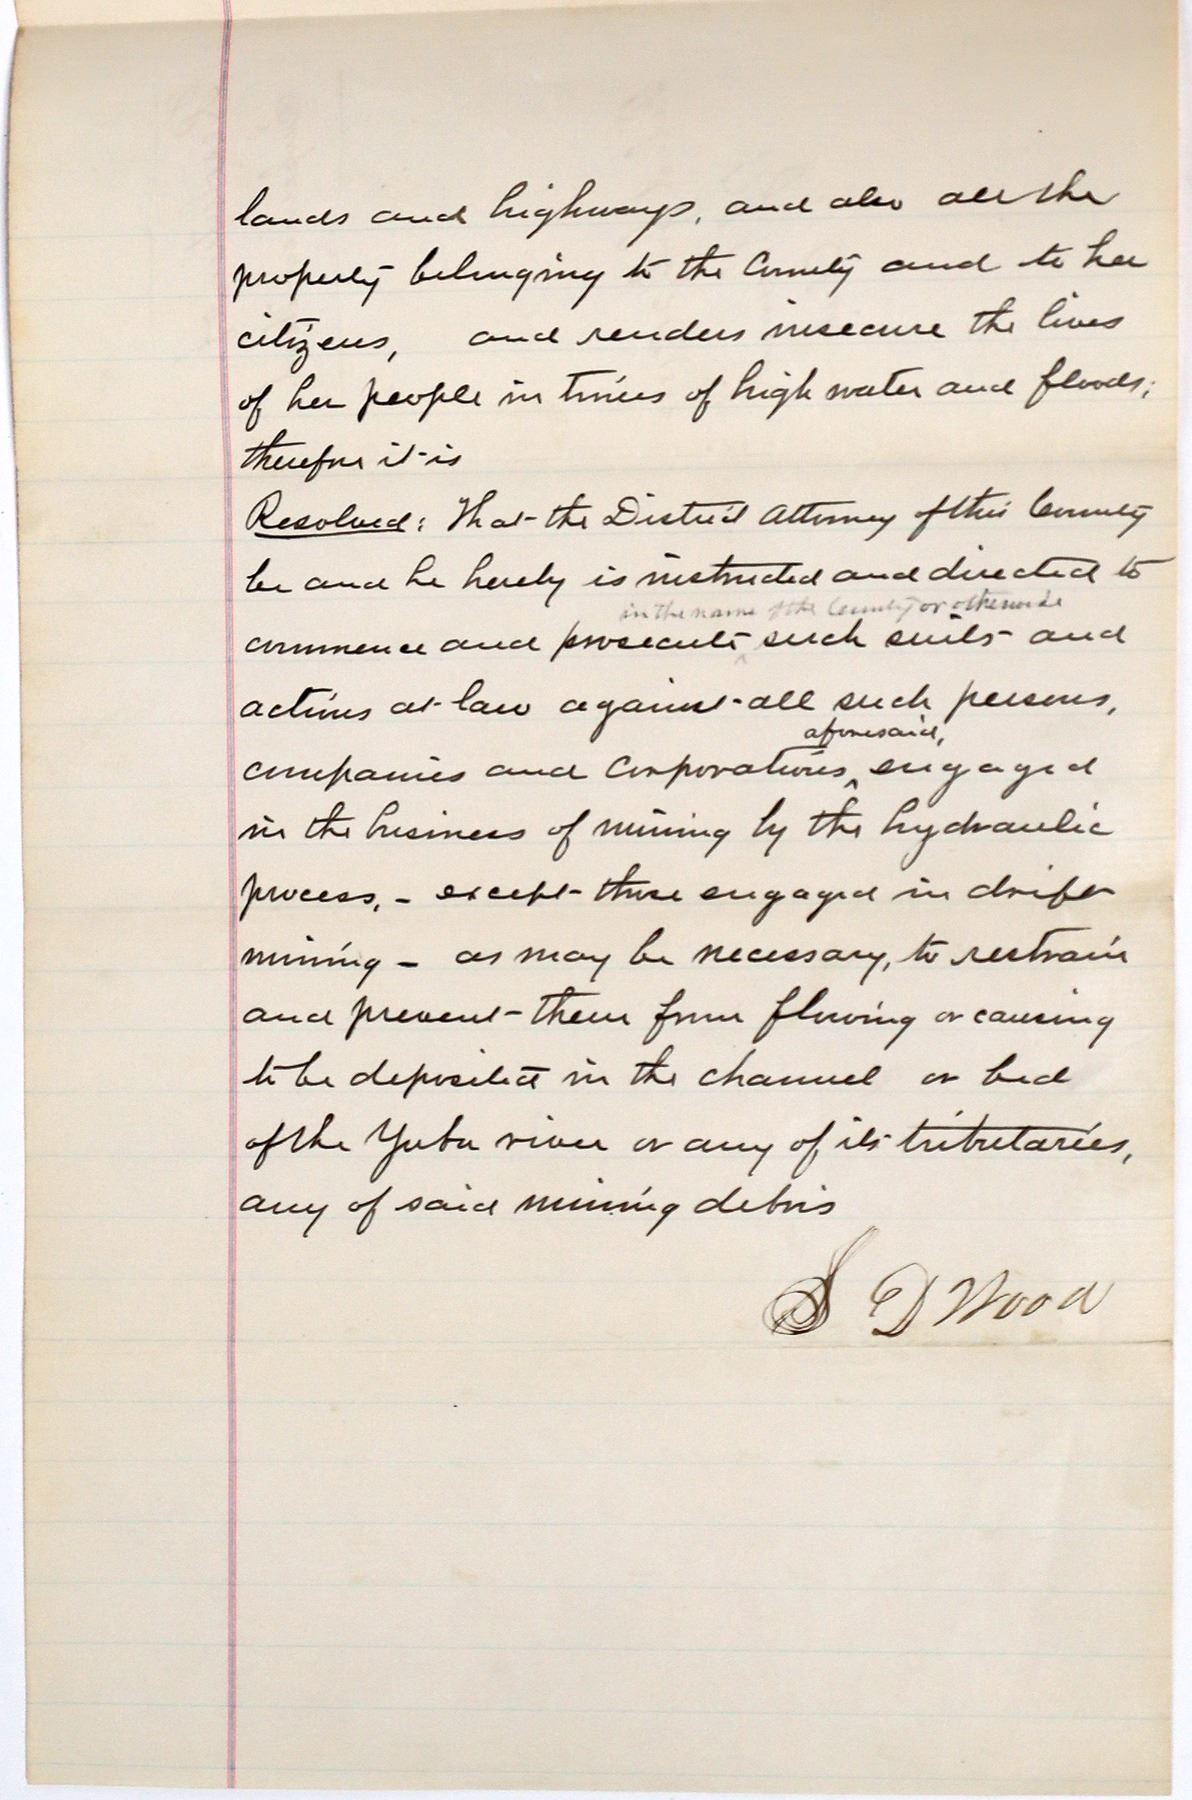 lands and highways, and also all the
property belonging to the County and to her
citizens, and renders insecure the lives
of her people in times of high water and floods;
therefore it is
Resolved: That the District Attorney of this County
be and he hereby is instructed and directed to
in the name of the County or otherwise
commence and prosecute ^ such suits and
actions at law against all such persons,
aforesaid,
companies and Corporations ^ engaged
in the business of mining by the hydraulic
process, - except those engaged in drift
mining - as may be necessary, to restrain
and prevent them from flowing or causing
to be deposited in the channel or bed
of the Yuba river or any of its tributaries,
any of said mining debris
S D Wood